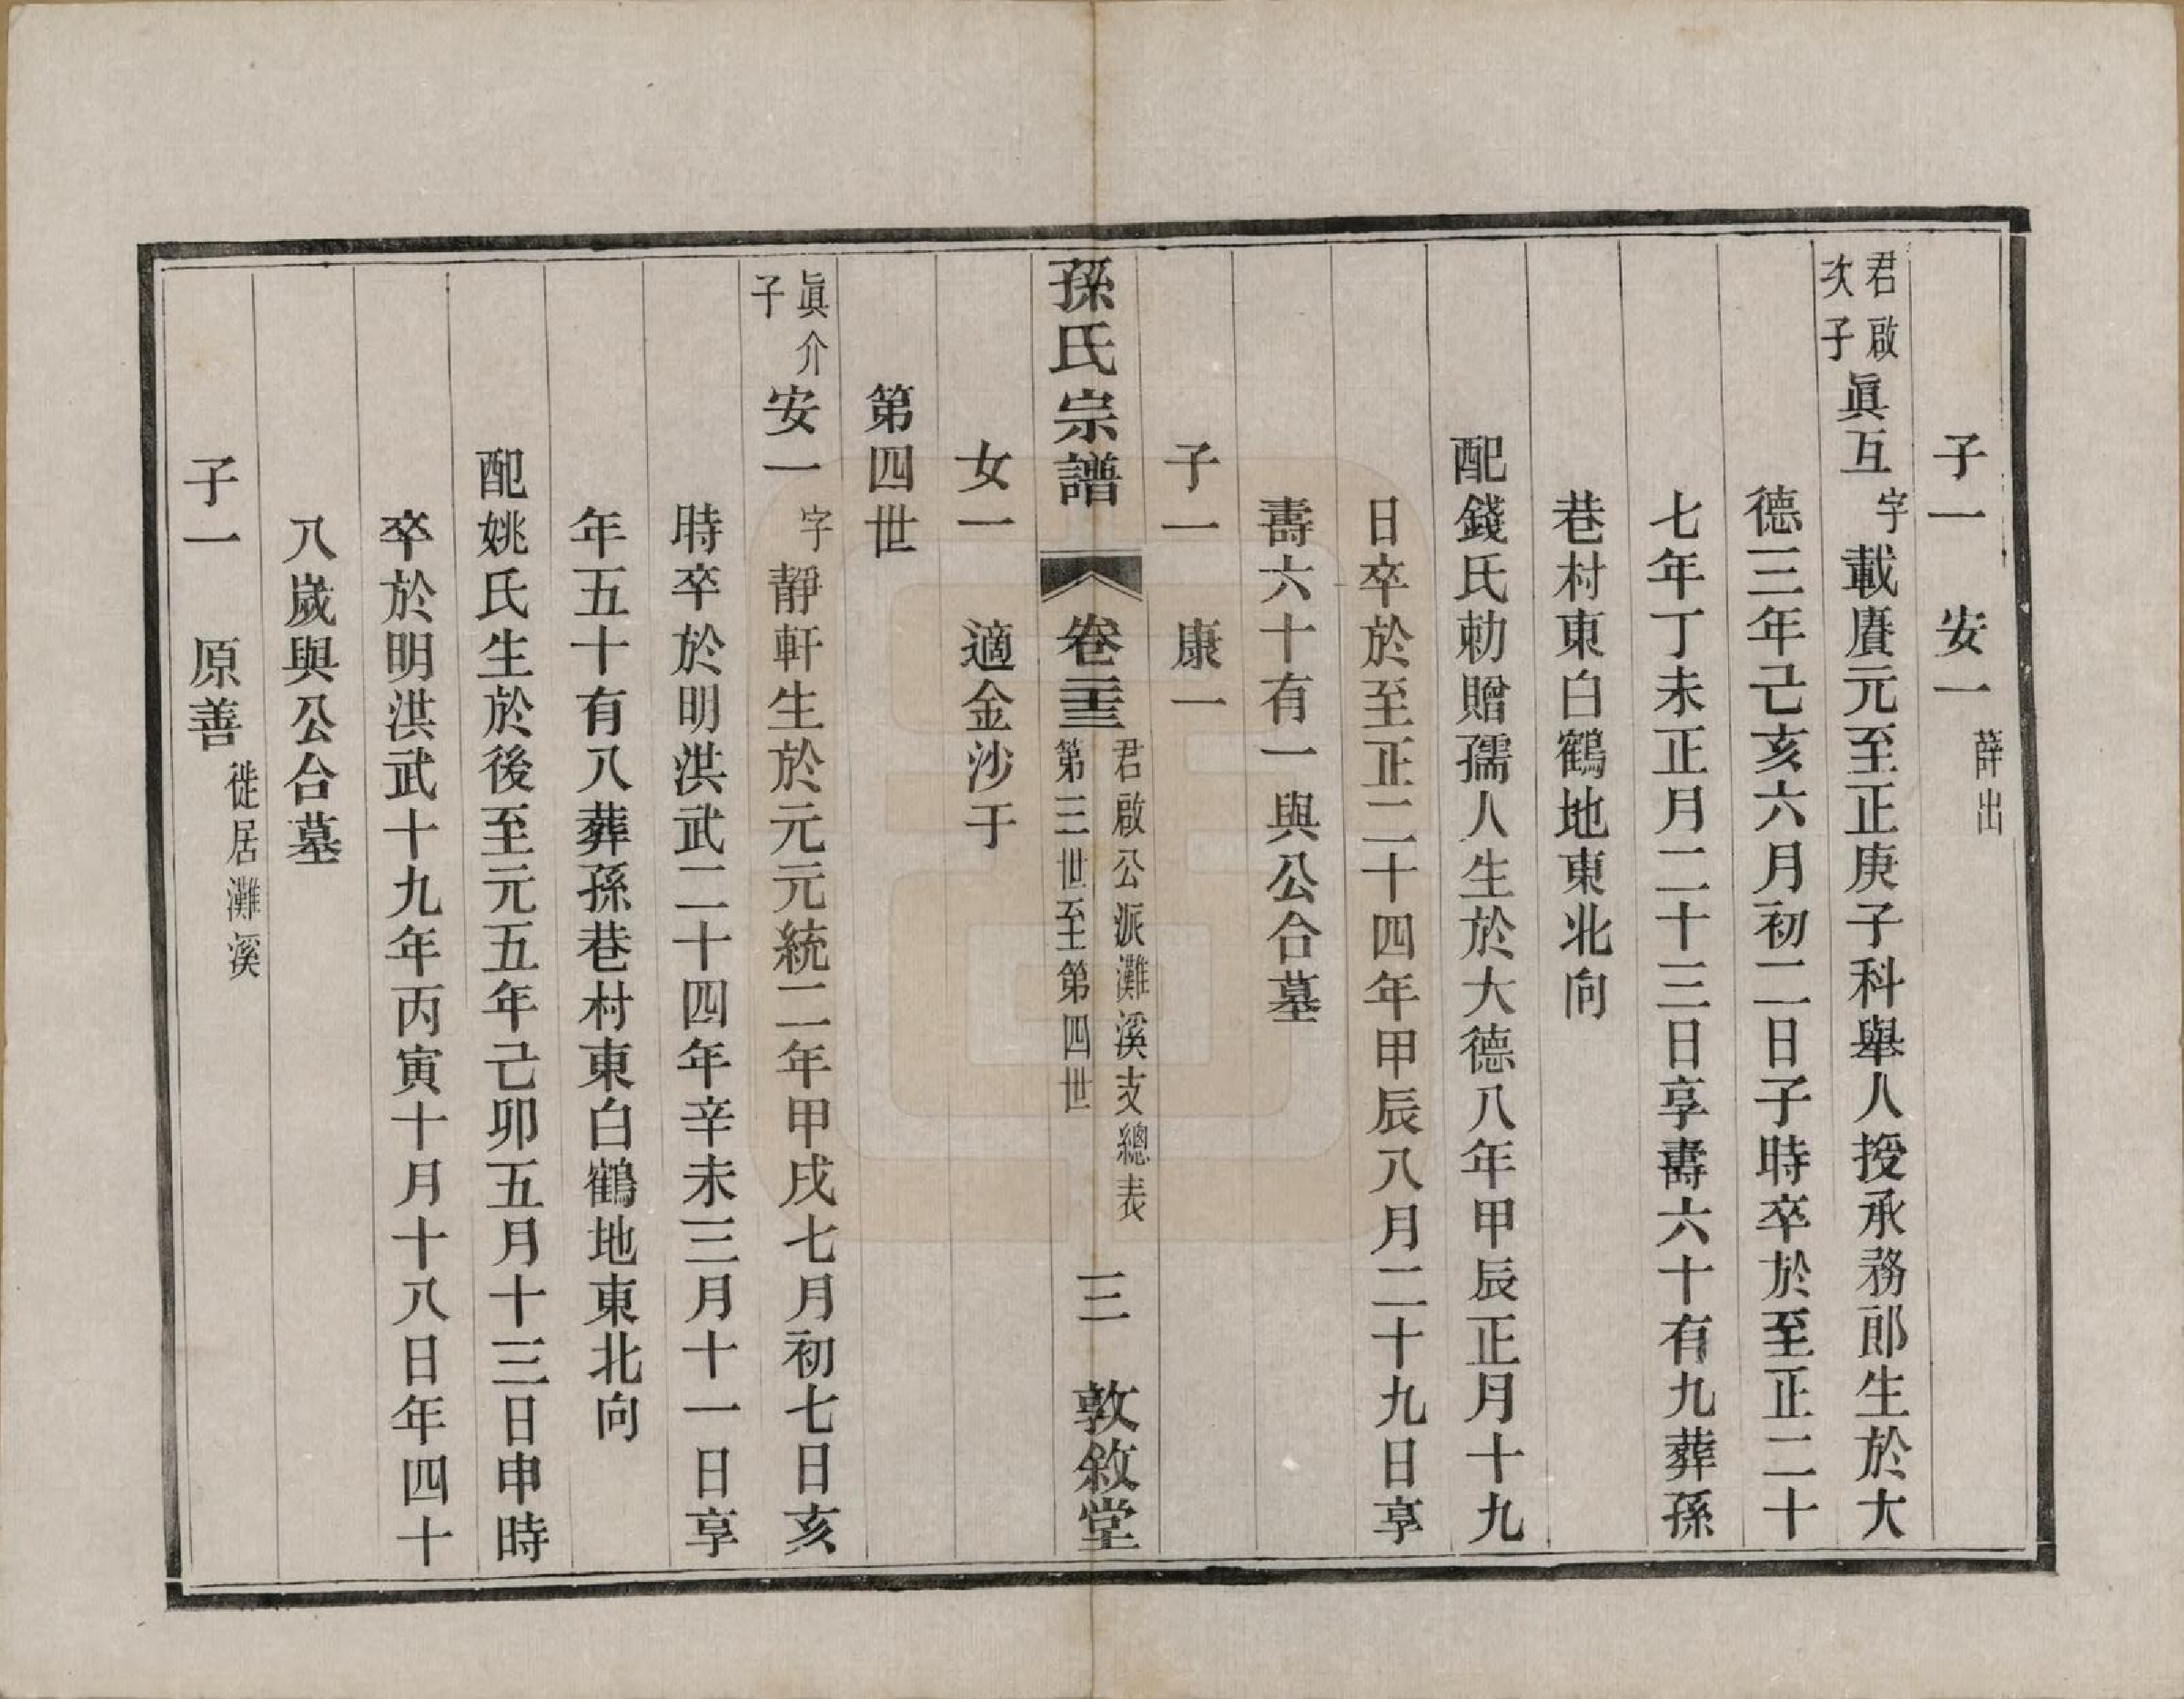 子一 安一 薛出
君啟次子 眞互 字 載賡元至正庚子科舉人授承務郎生於大
德三年己亥六月初二日子時卒於至正二十
七年丁未正月二十三日享壽六十有九葬孫
巷村東白鶴地東北向
配錢氏勅贈孺人生於大德八年甲辰正月十九
日卒於至正二十四年甲辰八月二十九日享
壽六十有一與公合墓
子一 康一
孫氏宗譜 卷三 君啟公派灘溪支總表 第三世至第四世 三 敦敘堂
女一 適金沙于
第四世
眞介子 安一 字 靜軒生於元元統二年甲戌七月初七日亥
時卒於明洪武二十四年辛未三月十一日享
年五十有八葬孫巷村東白鶴地東北向
配姚氏生於後至元五年己卯五月十三日申時
卒於明洪武十九年丙寅十月十八日年四十
八歲與公合墓
子一 原善 徙居灘溪